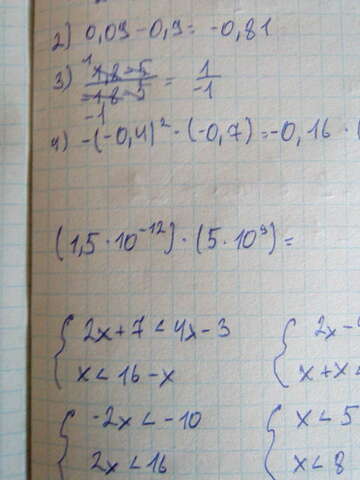 2) 0,09 - 0,9 = -0,81
3) 1,8 - 5 / -1,8 - 5 = 1 / -1
4) -(-0,4)² · (-0,7) = -0,16 ·
(1,5 · 10⁻¹²) · (5 · 10⁹) =
{ 2x + 7 < 4x - 3 { 2x -
x < 16 - x x + x <
{ -2x < -10 { x < 5
2x < 16 x < 8